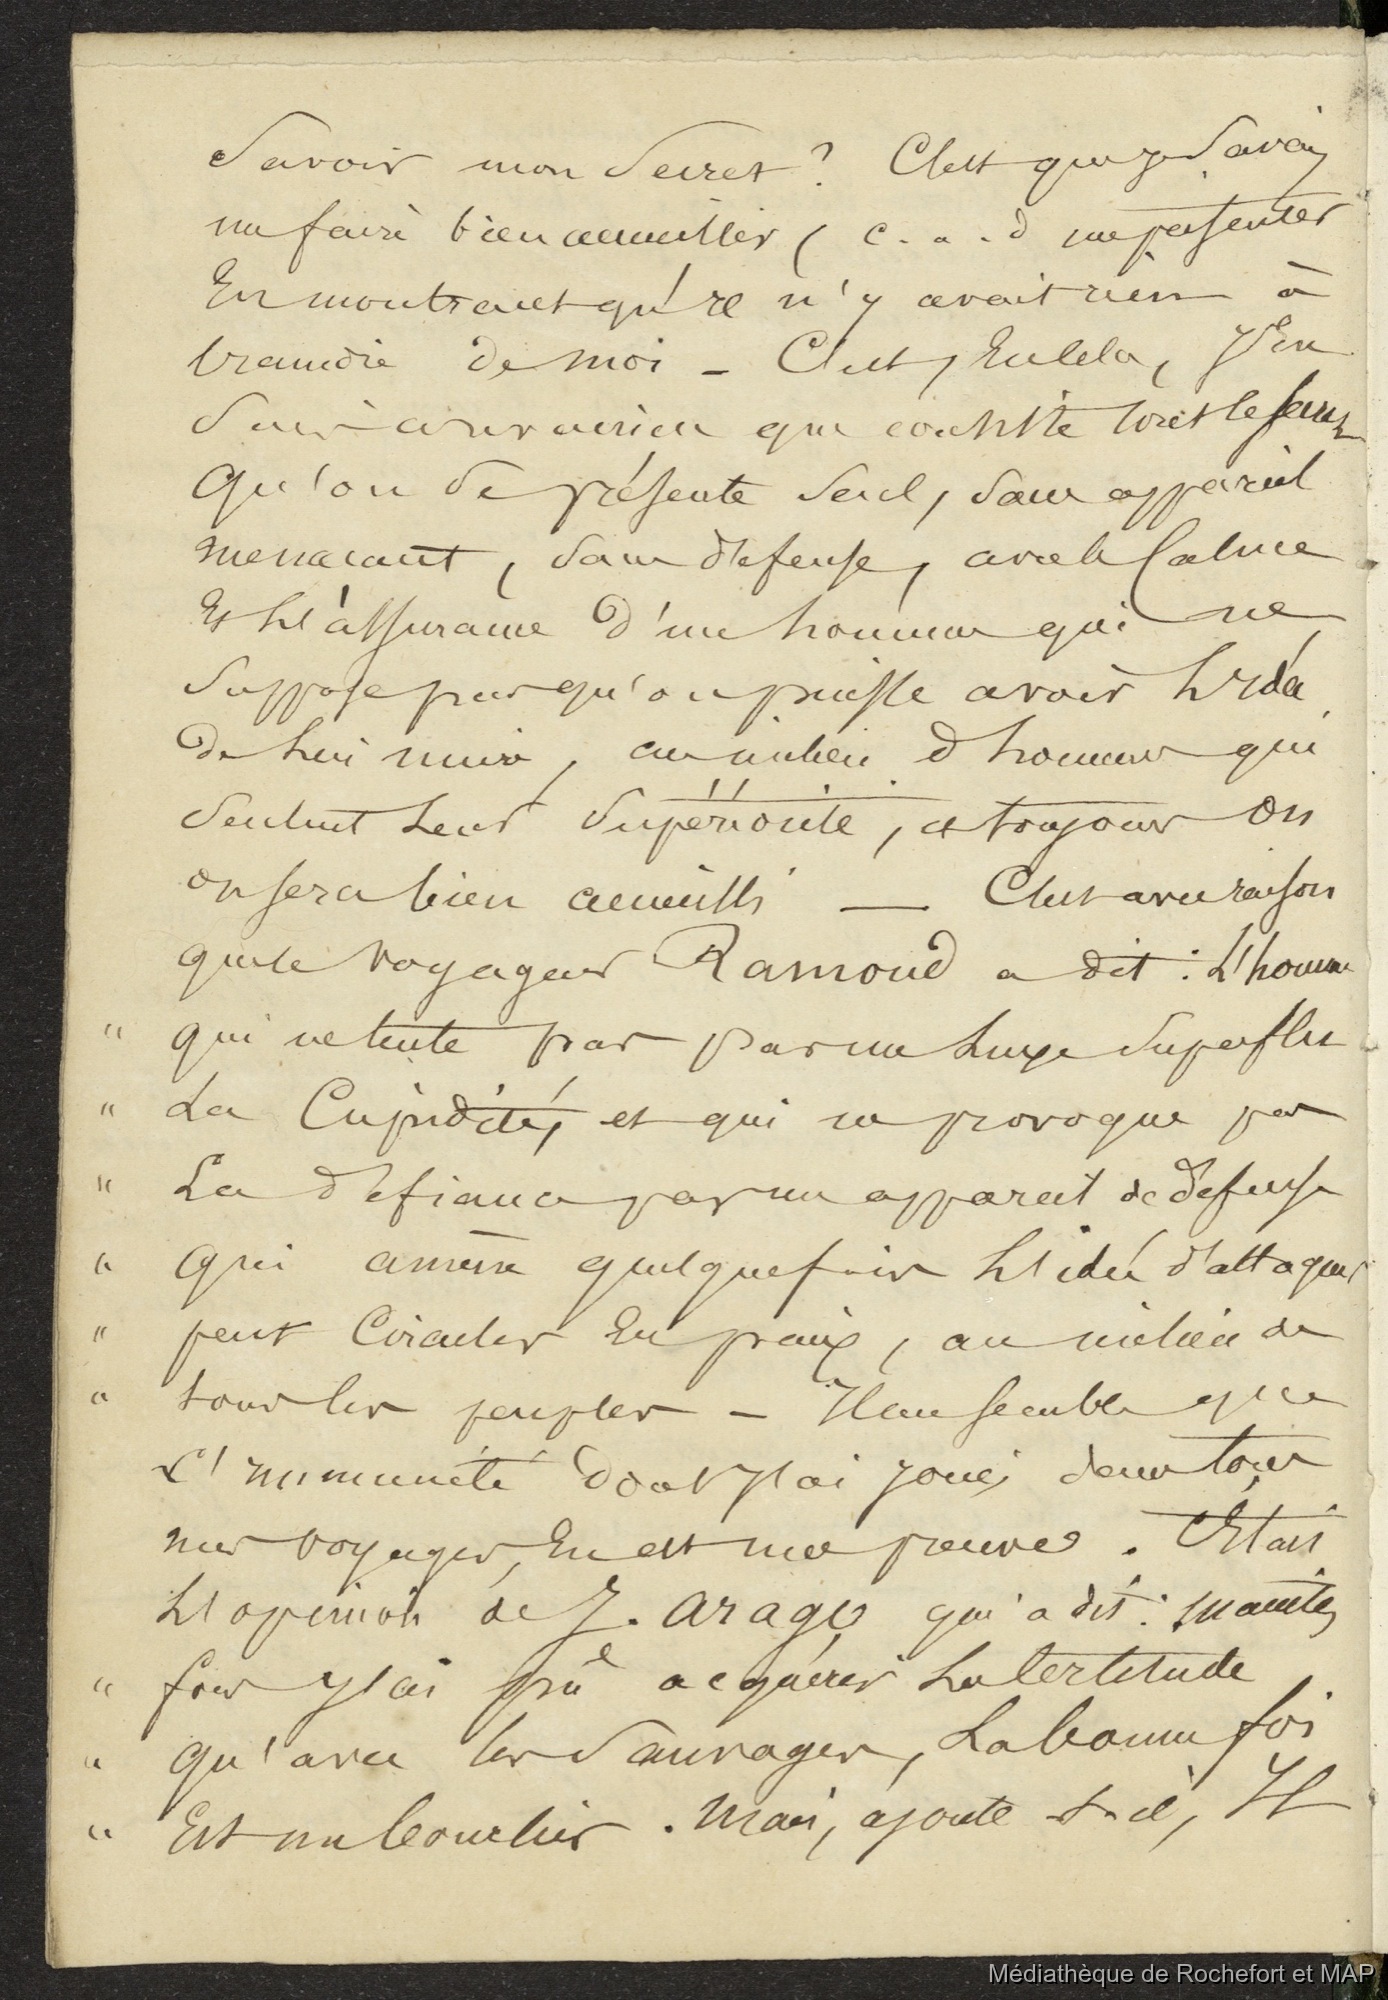 Savoir mon Secret ? C'est que je Savais
me faire bien accueillir, c. a. d me présenter
En montrant qu'il n'y avait rien à
craindre de moi _ C'est, En cela, J'en
Suis convaincu que consiste tout le secret
Qu'on Se présente Seul, Sans appareil
menacant, Sans défense, avec le Calme
Et L'assurance D'un homme qui ne
Suppose pas qu'on puisse avoir L'idée
De Lui nuire, au milieu d'hommes qui
Sentent Leur Supériorité, et toujours On
On sera bien accueilli — C'est avec raison
que le voyageur Ramond a dit : L'homme
" qui ne tente pas par un Luxe Superflu
" La Cupidité, et qui ne provoque pas
" La défiance par un appareil de défense
" Qui amène quelquefois L'idée d'attaquer
" peut Circuler En paix, au milieu de
" tous les peuples – Il me semble que
L'immunité Dont J'ai joui dans tous
mes voyages, En est une preuve. C'Etait
L'opinion de J. Arago qui a dit : maintes
" fois J'ai pu acquérir La Certitude
" Qu'avec les Sauvages, La bonne foi
" Est un bouclier. Mais, ajoute-t-il, Il
Médiathèque de Rochefort et MAP